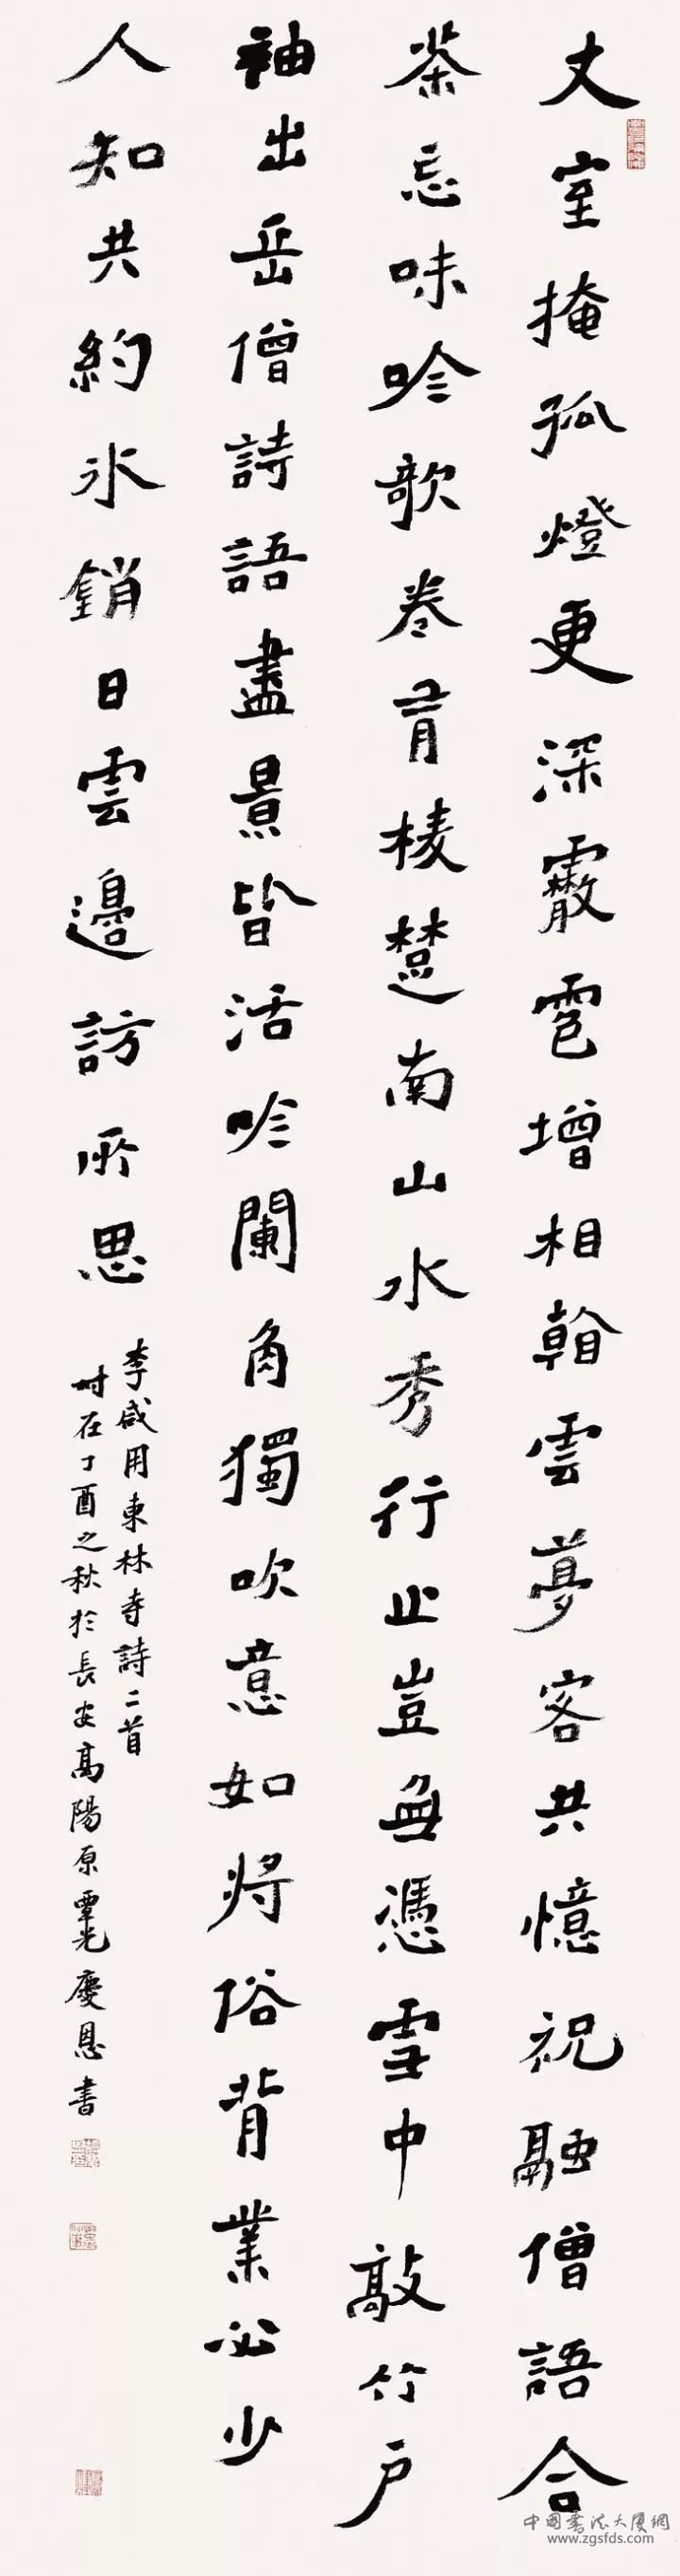 丈室掩孤燈更深霰雹增相看雲夢客共憶祝融僧語合
茶忘味吟欹卷有棱楚南山水秀行止豈無憑雪中敲竹戶
袖出岳僧詩語盡景皆活吟闌角獨吹意如將俗背業必少
人知共約冰銷日雲邊訪所思
李咸用東林寺詩二首
时在丁酉之秋於長安高陽原覃光慶恩書
中國書法大厦網
www.zgsfds.com